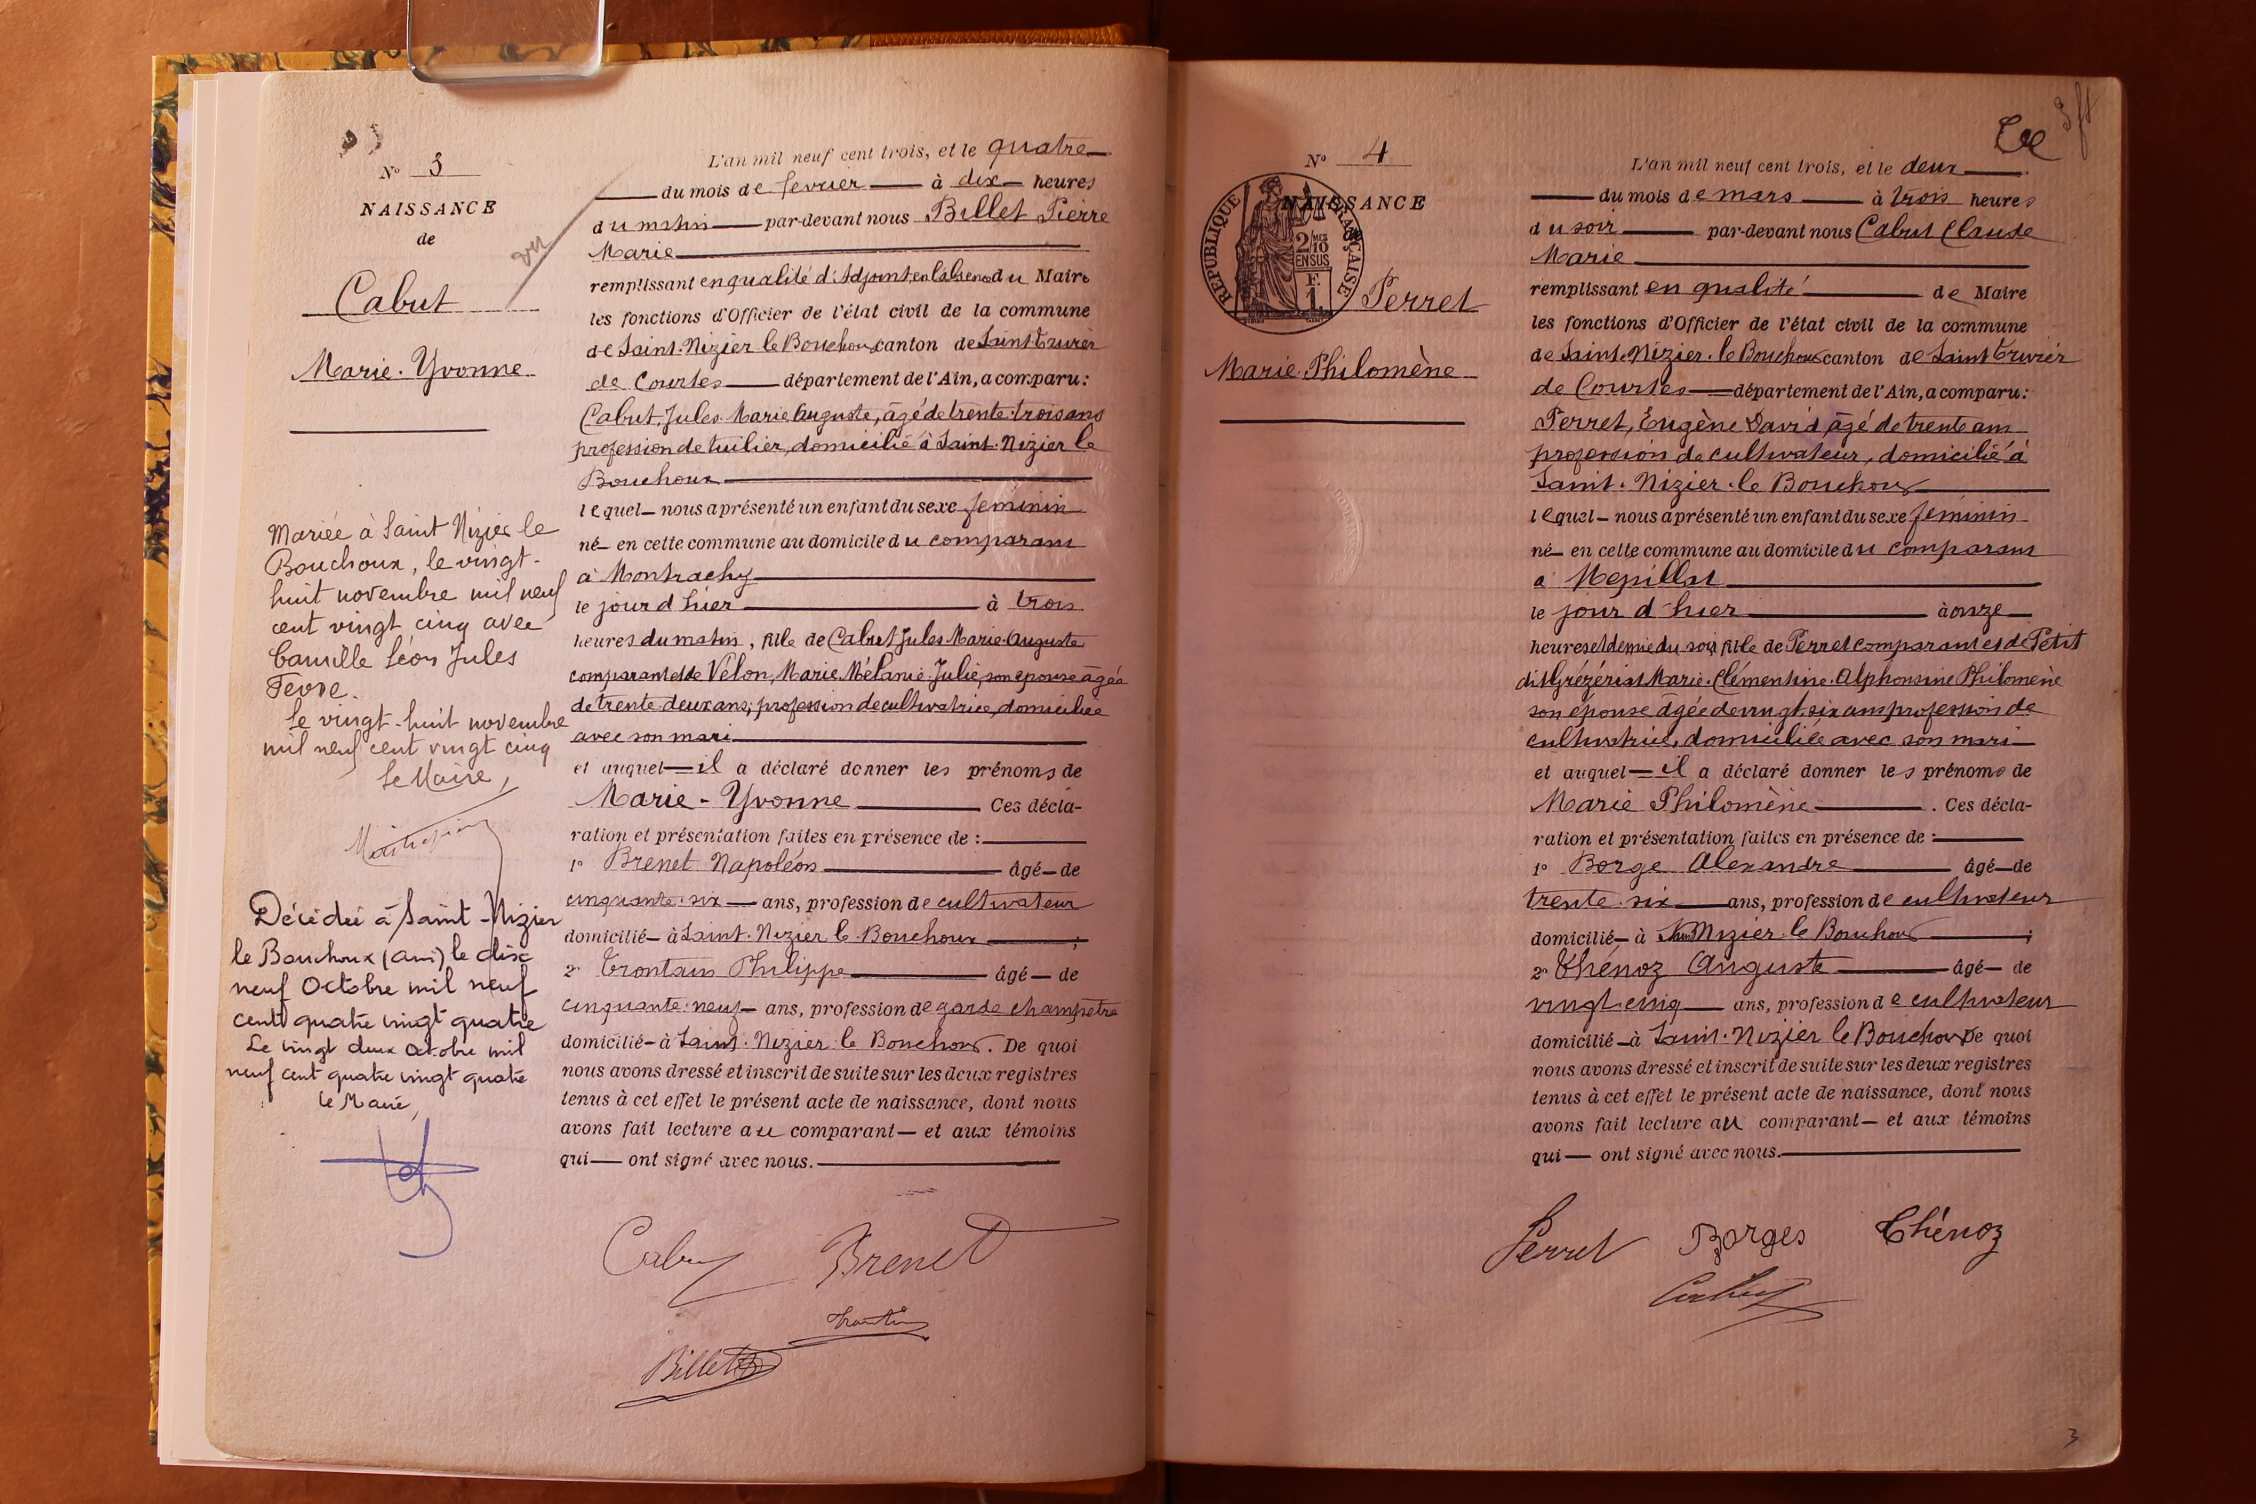 N° 3
NAISSANCE
de
Cabut
Marie-Yvonne
vu
Mariée à Saint Nizier le
Bouchoux, le vingt-
huit novembre mil neuf
cent vingt cinq avec
Camille Léon Jules
Fevre.
Le vingt-huit novembre
mil neuf cent vingt cinq
Le Maire,
Décédée à Saint-Nizier
le Bouchoux (ain) le dix
neuf Octobre mil neuf
cent quatre vingt quatre
Le vingt deux octobre mil
neuf cent quatre vingt quatre
Le Maire,
L'an mil neuf cent trois, et le quatre
du mois de fevrier à dix heures
du matin par-devant nous Billet Pierre
Marie
remplissant en qualité d'Adjoint, en l'absence du Maire
les fonctions d'Officier de l'état civil de la commune
de Saint-Nizier le Bouchoux canton de Saint Trivier
de Courtes département de l'Ain, a comparu:
Cabut, Jules Marie Auguste, âgé de trente-trois ans
profession de tuilier, domicilié à Saint-Nizier le
Bouchoux
lequel nous a présenté un enfant du sexe féminin
né en cette commune au domicile du comparant
à Montrachy
le jour d'hier à trois
heures du matin, fille de Cabut Jules Marie Auguste
comparant et de Vélon, Marie Mélanie Julie, son épouse âgée
de trente deux ans, profession de cultivatrice, domiciliée
avec son mari
et auquel il a déclaré donner les prénoms de
Marie-Yvonne Ces décla-
ration et présentation faites en présence de :
1° Brenet Napoléon âgé de
cinquante-six ans, profession de cultivateur
domicilié à Saint-Nizier le Bouchoux ;
2° Trontain Philippe âgé de
cinquante-neuf ans, profession de garde champêtre
domicilié à Saint-Nizier le Bouchoux. De quoi
nous avons dressé et inscrit de suite sur les deux registres
tenus à cet effet le présent acte de naissance, dont nous
avons fait lecture au comparant et aux témoins
qui ont signé avec nous.
Cabut Brenet
Trontain
Billet
N° 4
NAISSANCE
REPUBLIQUE FRANÇAISE
2/10 MES
EN SUS
F.
1
Perret
Marie Philomène
L'an mil neuf cent trois, et le deux
du mois de mars à trois heures
du soir par-devant nous Cabut Claude
Marie
remplissant en qualité de Maire
les fonctions d'Officier de l'état civil de la commune
de Saint-Nizier-le Bouchoux canton de Saint Trivier
de Courtes département de l'Ain, a comparu:
Perret, Eugène David, âgé de trente ans
profession de cultivateur, domicilié à
Saint-Nizier-le Bouchoux
lequel nous a présenté un enfant du sexe féminin
né en cette commune au domicile du comparant
à Mépillat
le jour d'hier à onze
heures et demie du soir, fille de Perret comparant et de Petit
dit Grézériat Marie-Clémentine-Alphonsine Philomène
son épouse âgée de vingt-six ans profession de
cultivatrice, domiciliée avec son mari
et auquel il a déclaré donner les prénoms de
Marie Philomène . Ces décla-
ration et présentation faites en présence de :
1° Borge Alexandre âgé de
trente-six ans, profession de cultivateur
domicilié à Saint Nizier-le Bouchoux ;
2° Thénoz Auguste âgé de
vingt-cinq ans, profession de cultivateur
domicilié à Saint-Nizier le Bouchoux De quoi
nous avons dressé et inscrit de suite sur les deux registres
tenus à cet effet le présent acte de naissance, dont nous
avons fait lecture au comparant et aux témoins
qui ont signé avec nous.
Perret Borges Thénoz
Cabut
3